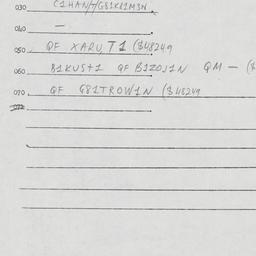 030 C1HAN/HG81K81M3W
040 —
050 QF XARU,T1 ($48249
060 B1KUS+1 QF B1ZOJ1N QM — ($
070 QF G81TROW1N ($48249